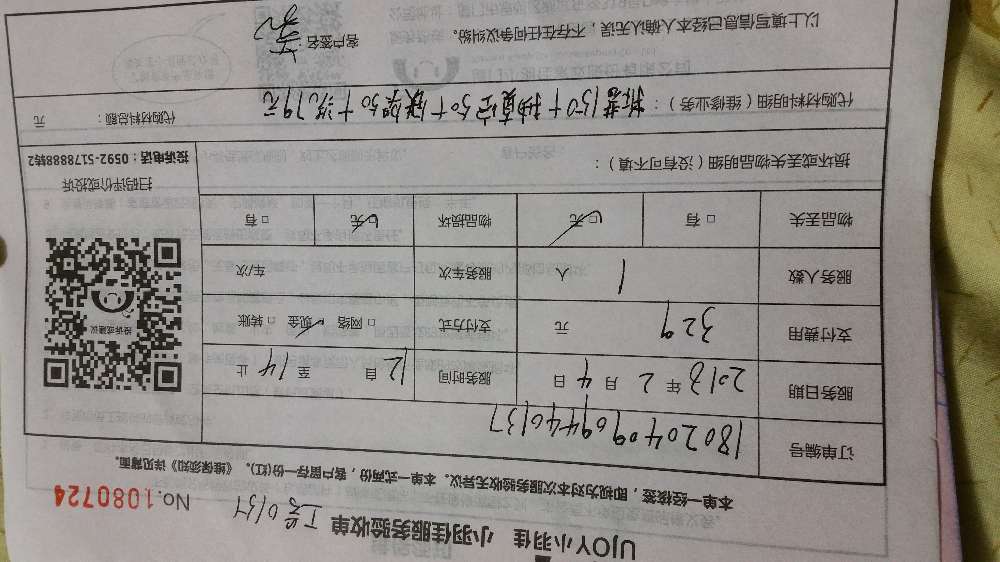 UJOY小羽佳 小羽佳服务验收单
工号0137 No.1080724
本单一经接签，即视为对本次服务验收无异议。本单一式两份，客户留存一份(红)。《维保须知》详见背面。
订单编号 18020409094460137
服务日期 2018年2月4日 服务时间 自12至14止
支付费用 329元 支付方式 □网络 ☑现金 □转账
服务人数 1人 服务车次 车/次
物品丢失 □有 ☑无 物品损坏 □有 ☑无
投诉或建议
扫码评价或投诉
投诉电话：0592-5178888转2
损坏或丢失物品明细（没有可不填）：
代购材料明细（维修业务）：拆装150+抽真空50+ 50+ 79元 代购材料总额： 元
以上填写信息已经本人确认无误，不存在任何争议纠纷。
客户签名：